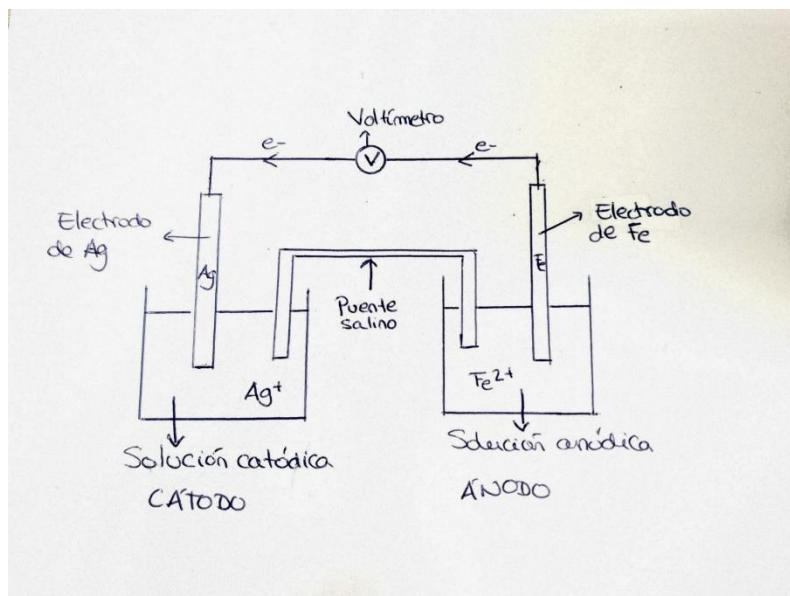 Voltímetro
e-
e-
Electrodo
de Ag
Electrodo
de Fe
Ag
Puente
salino
Ag+
Fe2+
Solución catódica
CÁTODO
Solución anódica
ÁNODO